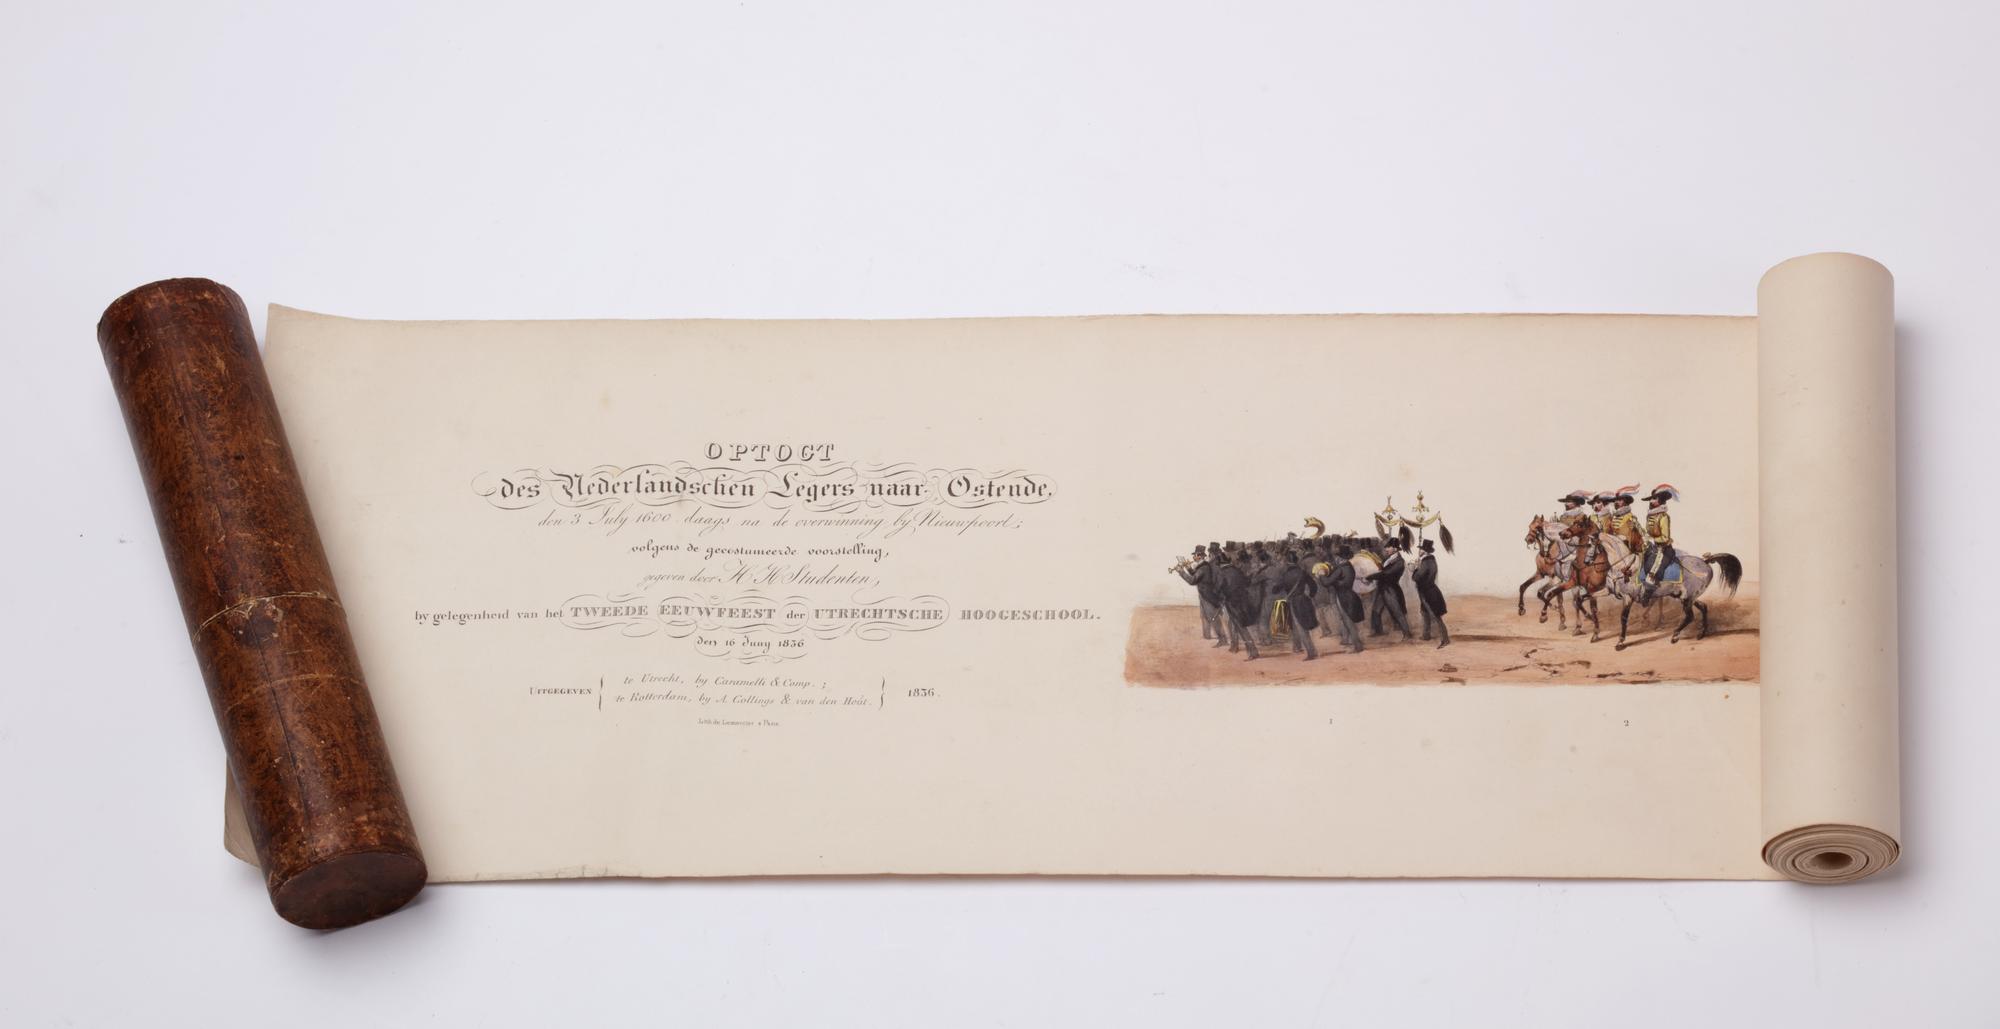 OPTOGT
des Nederlandschen Legers naar Ostende,
den 3 July 1600 daags na de overwinning by Nieuwpoort;
volgens de gecostumeerde voorstelling,
gegeven door H H Studenten,
by gelegenheid van het TWEEDE EEUWFEEST der UTRECHTSCHE HOOGESCHOOL.
den 16 Juny 1836
UITGEGEVEN te Utrecht, by Caramelli & Comp. ;
te Rotterdam, by A. Collings & van den Hoût. 1836.
Lith. de Lemercier a Paris.
1 2